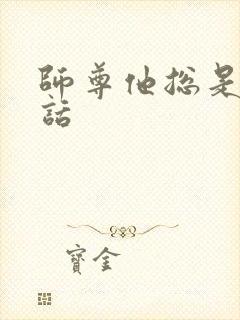 師尊他總是
話
寶金